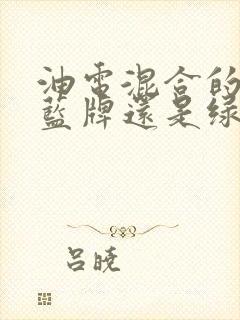 油電混合的
藍牌還是綠
呂曉